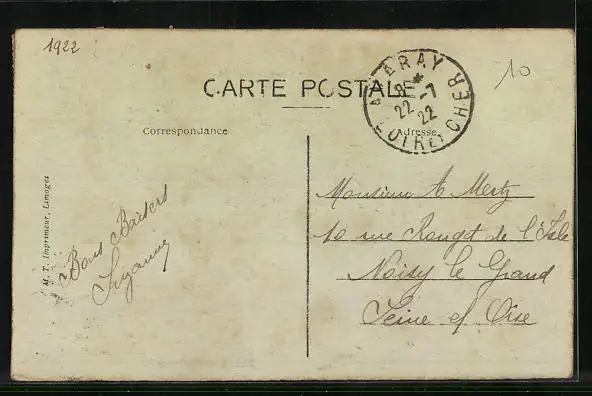 1922
10
CARTE POSTALE
22 -7
22
LOIR & CHER
Correspondance
Adresse
M. T. Imprimeur, Limoges
Bons Baisers
Suzanne
Monsieur A Mertz
10 rue Rouget de l'Isle
Noisy le Grand
Seine et Oise